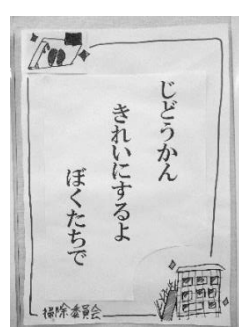 じどうかん
きれいにするよ
ぼくたちで
掃除委員会